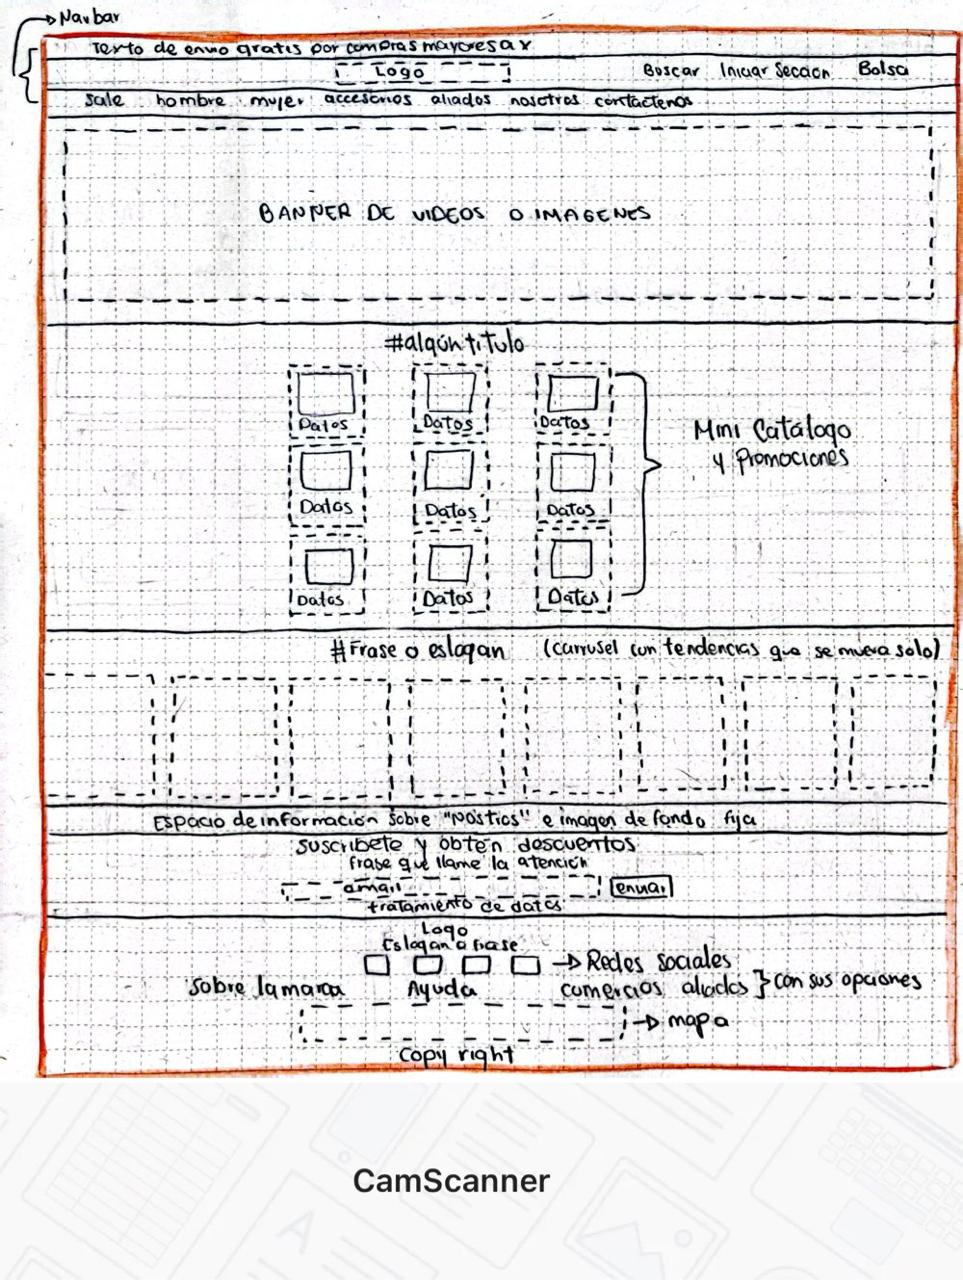 Navbar
Texto de envio gratis por compras mayores a x
Logo
Buscar Iniciar Seccion Bolsa
Sale hombre mujer accesorios aliados nosotros contáctenos
BANNER DE VIDEOS O IMAGENES
#algún titulo
Datos Datos Datos
Mini Catálogo
y promociones
Datos Datos Datos
Datos Datos Datos
#Frase o eslogan (carrusel con tendencias que se mueva solo)
ESPACIO de información sobre e imagen de fondo fija
suscribete y obtén descuentos
frase que llame la atención
email
enviar
tratamiento de datos
Logo
Eslogan o frase
Redes sociales
Sobre la marca Ayuda comercios aliados } con sus opciones
mapa
Copy right
CamScanner